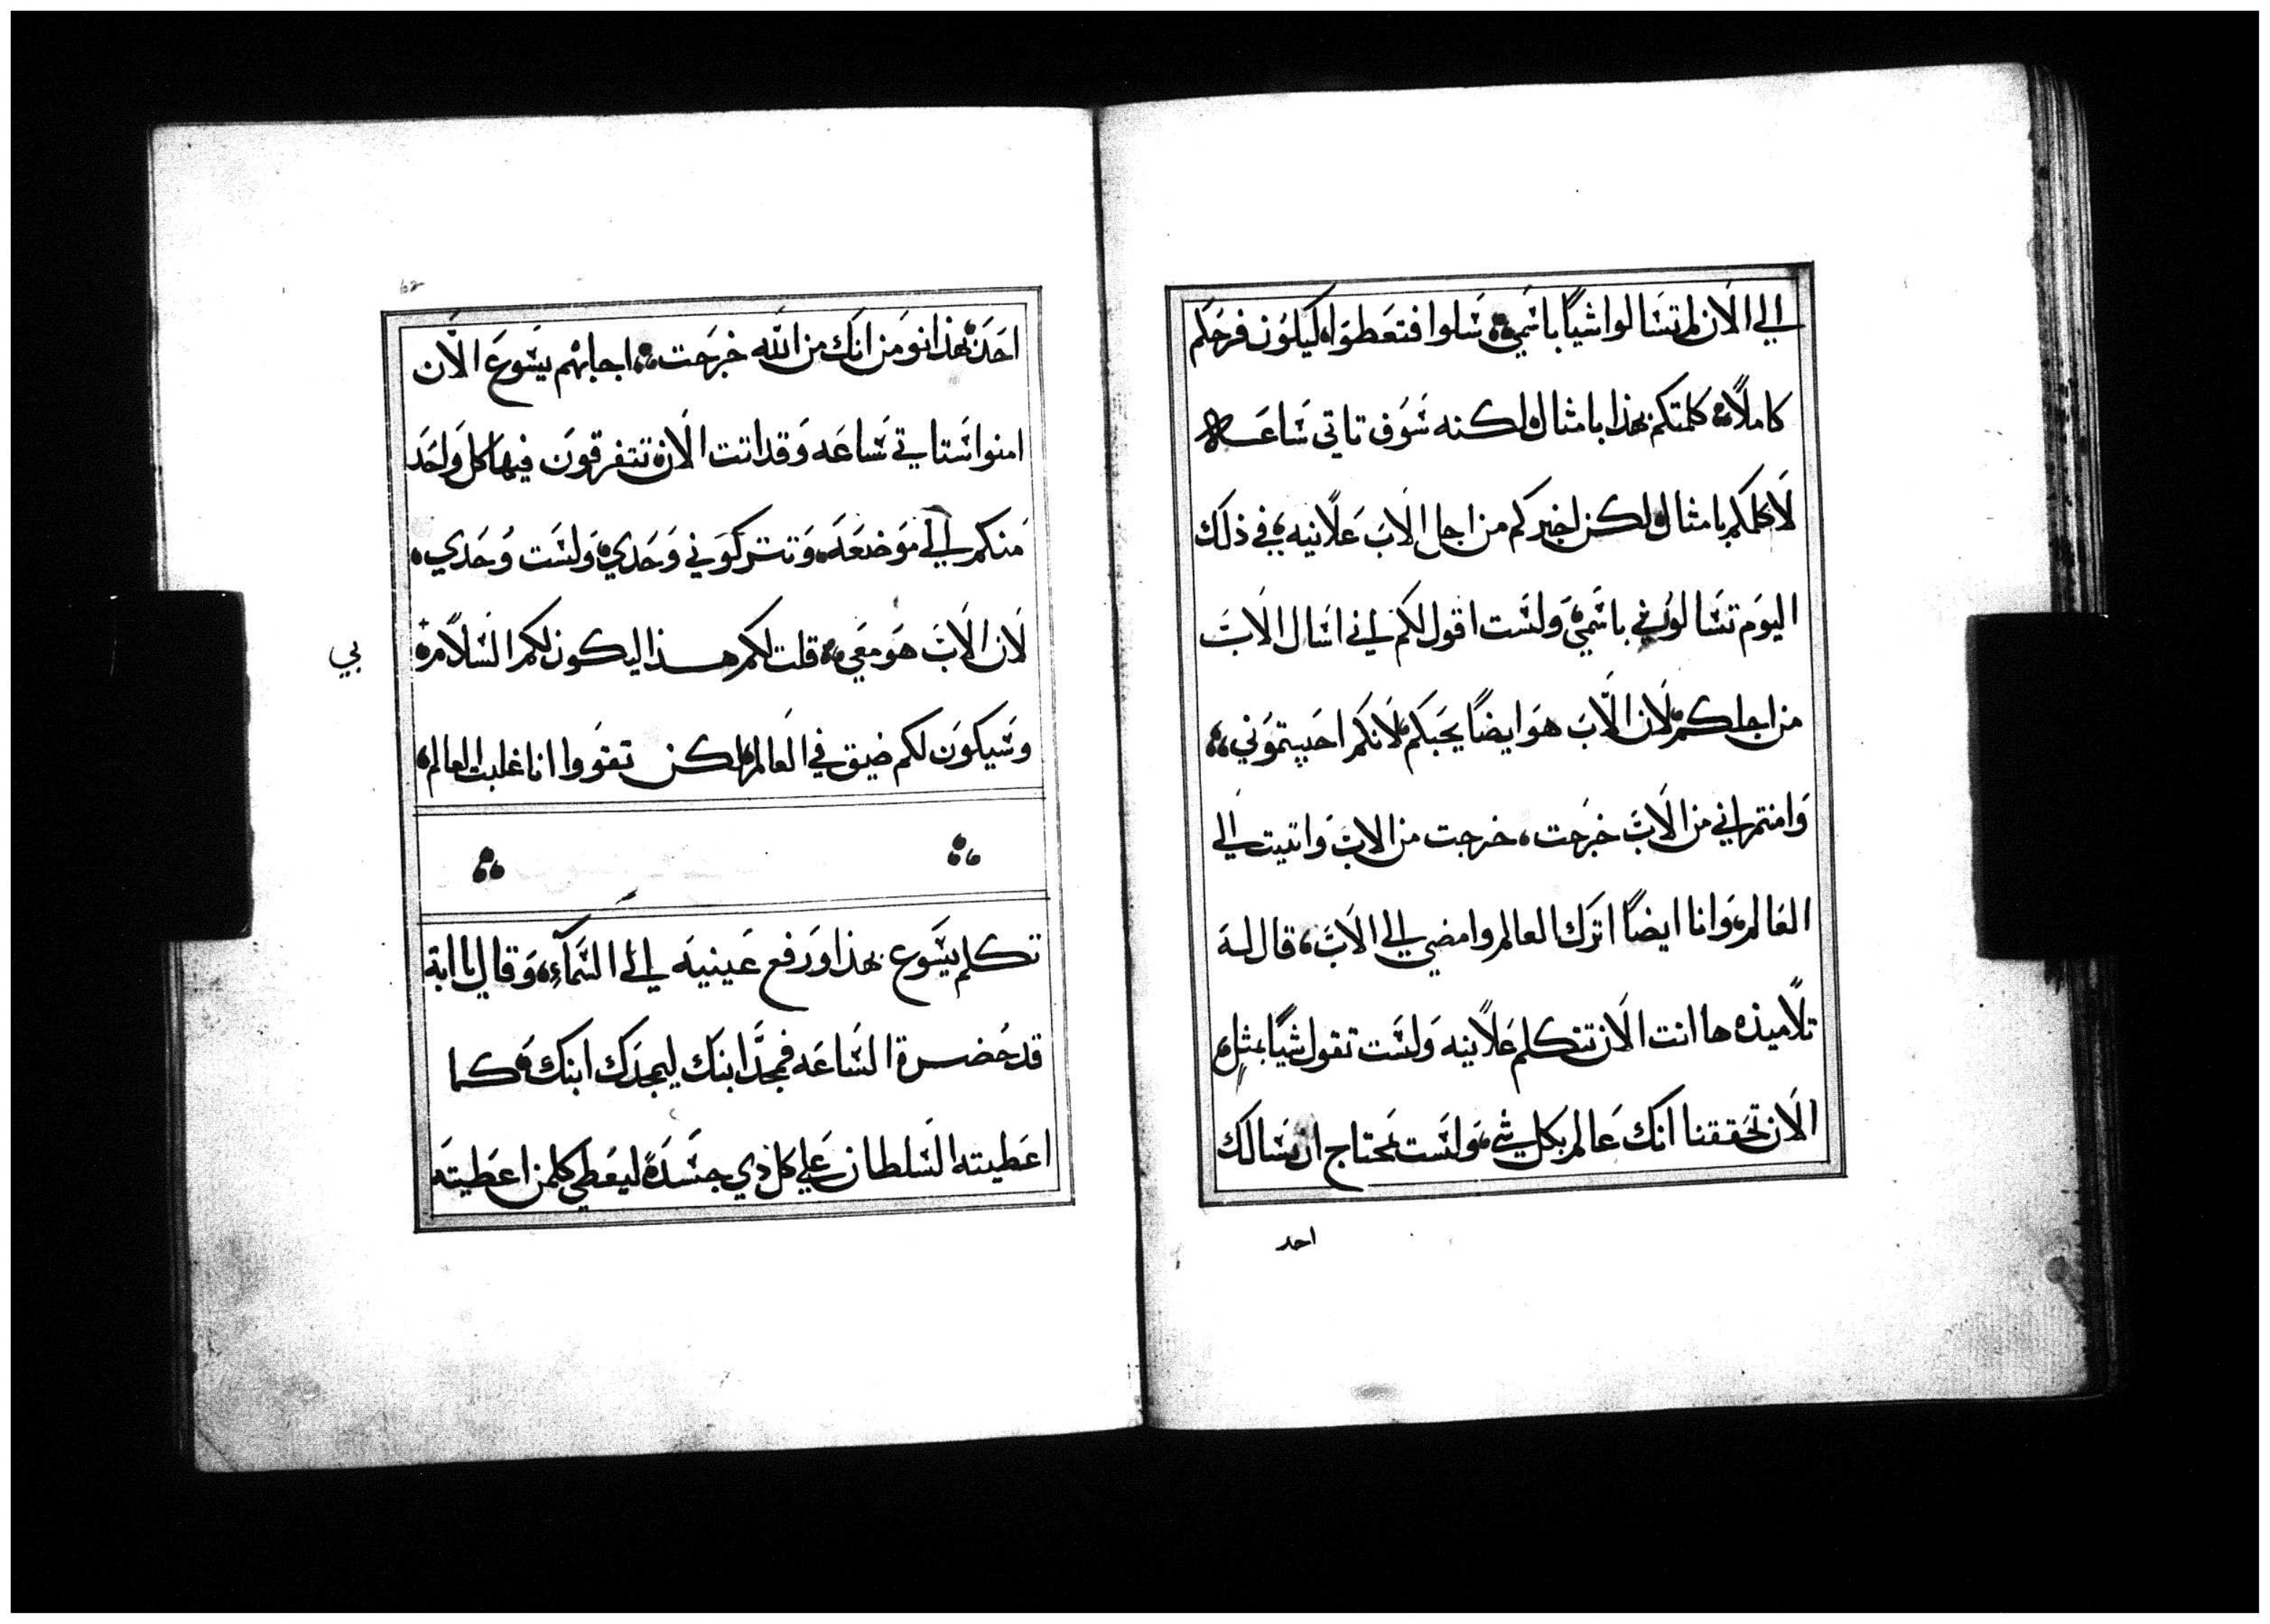 الي الان لم تسالوا شيا باسمي سلوا فتعطوا كيلون فرحكم
كاملا كلمتكم بهذا بامثال ولكنه سوف تاتي ساعه
لا اكلمكم بامثال ولكن اخبركم من اجل الاب علانيه في ذلك
اليوم تسالون في باسمي ولست اقول لكم اني اسال الاب
من اجلكم لان الاب هو ايضا يحبكم لانكم احببتموني
وامنتم اني من الاب خرجت خرجت من الاب واتيت الي
العالم وانا ايضا اترك العالم وامضي الي الاب قال له
تلاميذه ها انت الان تتكلم علانيه ولست تقول شيا بمثل
الان تحققنا انك عالم بكل شي ولست تحتاج ان يسالك
احد
احد بهذا نومن انك من الله خرجت اجابهم يسوع الان
امنوا ستاتي ساعه وقد اتت الان تتفرقون فيها كل واحد
منكم الي موضعه وتتركوني وحدي ولست وحدي
لان الاب هو معي قلت لكم هذا ليكون لكم السلام
بي
وسيكون لكم ضيق في العالم لكن تقووا انا غلبت العالم
تكلم يسوع بهذا ورفع عينيه الي السمآء وقال يا ابة
قد حضرة الساعه فمجد ابنك ليمجدك ابنك كما
اعطيته السلطان علي كل ذي جسد ليعطي كلمن اعطيته